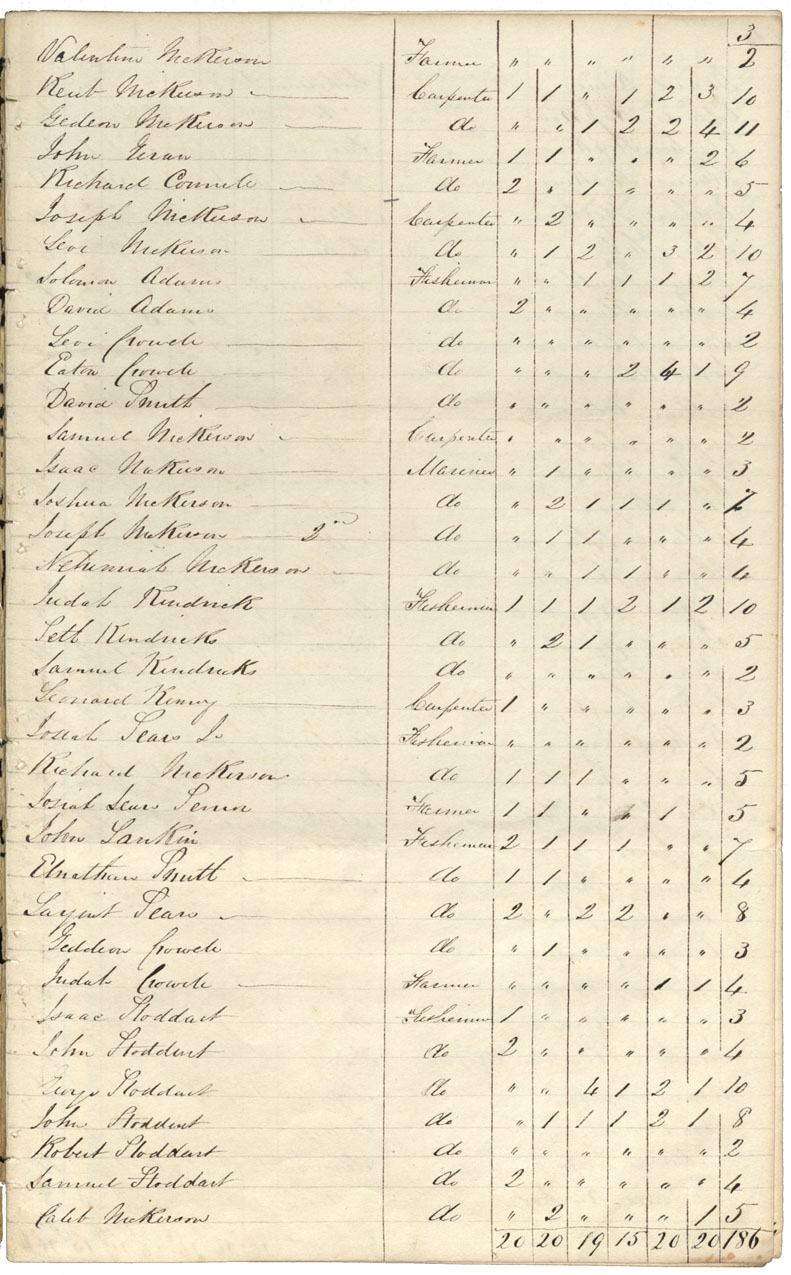 3
Valentine Nickerson Farmer " " " " " " 2
Reut Nickerson Carpenter 1 1 " 1 2 3 10
Gedeon Nickerson do " " 1 2 2 4 11
John Geran Farmer 1 1 " " " 2 6
Richard Connele do 2 " 1 " " " 5
Joseph Nickerson Carpenter " 2 " " " " 4
Levi Nickerson do " 1 2 " 3 2 10
Solomon Adams Fisherman " " 1 1 1 2 7
David Adams do 2 " " " " " 4
Levi Crowele do " " " " " " 2
Eaton Crowele do " " " 2 4 1 9
David Smith do " " " " " " 2
Samuel Nickerson Carpenter " " " " " " 2
Isaac Nickerson Mariner " 1 " " " " 3
Joshua Nickerson do " 2 1 1 1 " 7
Joseph Nickerson 2nd do " 1 1 " " " 4
Nehimiah Nickerson do " " 1 1 " " 4
Judah Kendrick Fisherman 1 1 1 2 1 2 10
Seth Kendricks do " 2 1 " " " 5
Samuel Kendricks do " " " " " " 2
Leonard Kenny Carpenter 1 " " " " " 3
Josiah Sears Jr Fisherman " " " " " " 2
Richard Nickerson do 1 1 1 " " " 5
Josiah Sears Senior Farmer 1 1 " " 1 5
John Lankin Fisherman 2 1 1 1 " " 7
Elnathan Smith do 1 1 " " " " 4
Sarjent Sears do 2 " 2 2 " " 8
Geddeon Crowele do " 1 " " " " 3
Judah Crowele Farmer " " " " 1 1 4
Isaac Stoddart Fisherman 1 " " " " " 3
John Stoddert do 2 " " " " " 4
Stoddart do " " 4 1 2 1 10
John Stoddert do " 1 1 1 2 1 8
Robert Stoddart do " " " " " " 2
Samuel Stoddart do 2 " " " " " 4
Caleb Nickerson do " 2 " " " 1 5
20 20 19 15 20 20 186